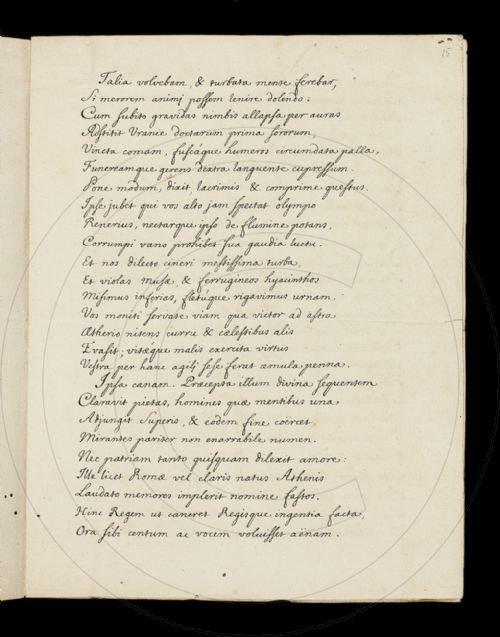 15
Talia volvebam, & turbata mente ferebar,
Si merorem animi possem lenire dolendo:
Cum subito gravidas nimbis allapsa per auras
Adstitit Uranie doctarum prima sororum,
Vincta comam, fuscáque humeros circumdata palla,
Funereamque gerens dextra languente cupressum.
Pone modum, dixit, lacrimis & comprime questus.
Ipse jubet qui vos alto jam spectat olympo
Renerius, nectarque ipso de flumine potans,
Corrumpi vano prohibet sua gaudia luctu.
Et nos dilecto cineri mestissima turba,
Et violas Musa, & ferrugineos hyacinthos
Misimus inferias, fletúque rigavimus urnam.
Vos moniti servate viam qua victor ad astra
Ætherio nitens curru & cælestibus alis
Evasit; vitáque malis exercita virtus
Vestra per hanc agilj sese ferat æmula penna.
Ipsa canam. Præcepta illum divina sequentem
Claravit pietas, homines quæ mentibus una
Adjungit Superis, & eodem fine coercet
Mirantes pariter non enarrabile numen.
Nec patriam tanto quisquam dilexit amore:
Ille licet Romæ vel claris natus Athenis
Laudato memores implerit nomine fastos.
Hinc Regem ut caneret Regisque ingentia facta,
Ora sibi centum ac vocem voluisset aënam.